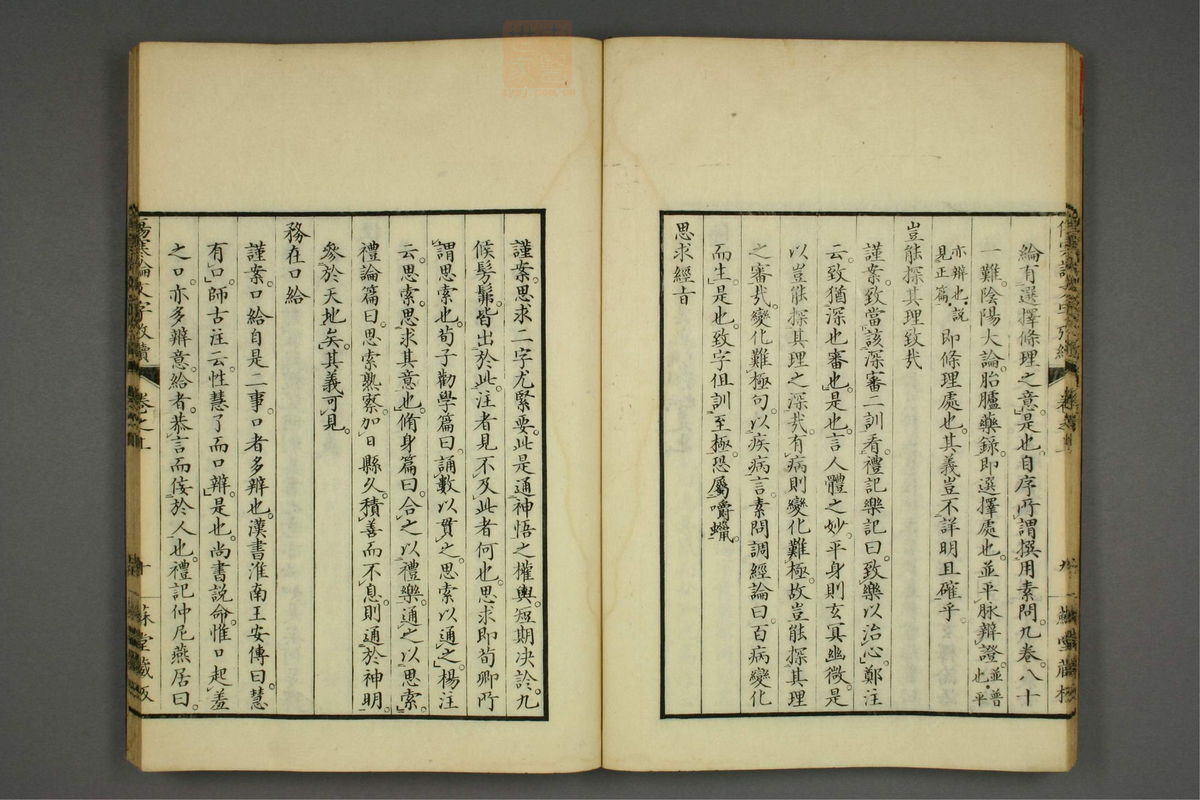 綸有選擇條理之意是也自序所謂撰用素問九卷八十
一難陰陽大論胎臚藥錄即選擇處也並平脉辯證並普也平
亦辨也說見正篇即條理處也其義豈不詳明且確乎
豈能探其理致㢤
謹案致當該深審二訓看禮記樂記曰致樂以治心鄭注
云致猶深也審也是也言人體之妙平身則玄冥幽微是
以豈能探其理之深㢤有病則變化難極故豈能探其理
之審㢤變化難極句以疾病言素問調經論曰百病變化
而生是也致字但訓至極恐屬嚼蠟
思求經旨
謹案思求二字尤緊要此是通神悟之權輿短期决診九
候髣髴皆出於此注者見不及此者何也思求即荀卿所
謂思索也荀子勸學篇曰誦數以貫之思索以通之楊注
云思索思求其意也脩身篇曰合之以禮樂通之以思索
禮論篇曰思索熟察加日縣久積善而不息則通於神明
參於天地矣其義可見
務在口給
謹案口給自是二事口者多辨也漢書淮南王安傳曰慧
有口師古注云性慧了而口辨是也尚書説命惟口起羞
之口亦多辨意給者恭言而佞於人也禮記仲尼燕居曰
傷寒論文字攷續
卷之上
十
蘇堂藏板